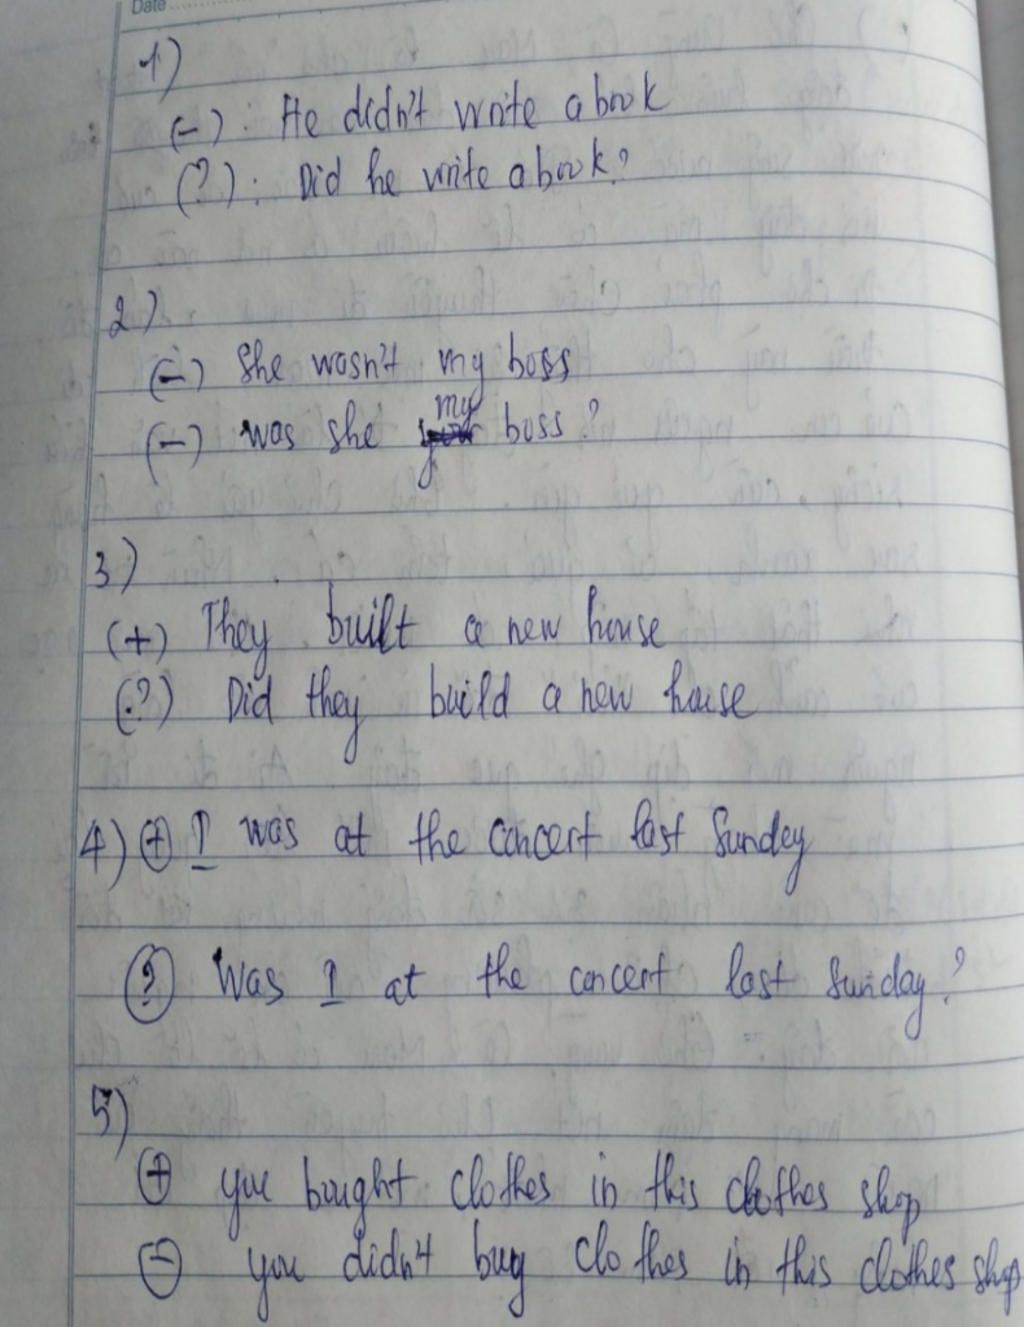 Date
1)
(-): He didn't write a book
(?): Did he write a book?
2)
(-) She wasn't my boss
my
(-) was she boss?
3)
(+) They built a new house
(?) Did they build a new house
4) (+) I was at the concert last Sunday
(?) Was I at the concert last Sunday?
5)
(+) you bought clothes in this clothes shop
(-) you didn't buy clothes in this clothes shop